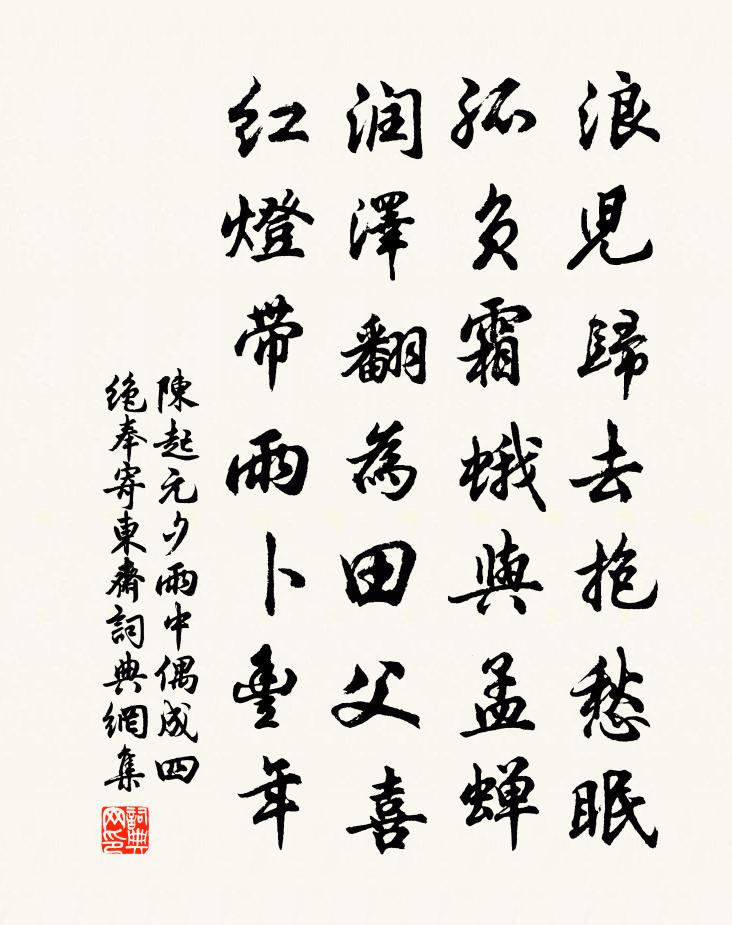 浪兒歸去抱愁眠
孤負霜蛾與孟蟬
润澤翻為田父喜
红燈带雨卜豊年
陳起元夕雨中偶成四
絶奉寄東齋詞典網集
詞典网印